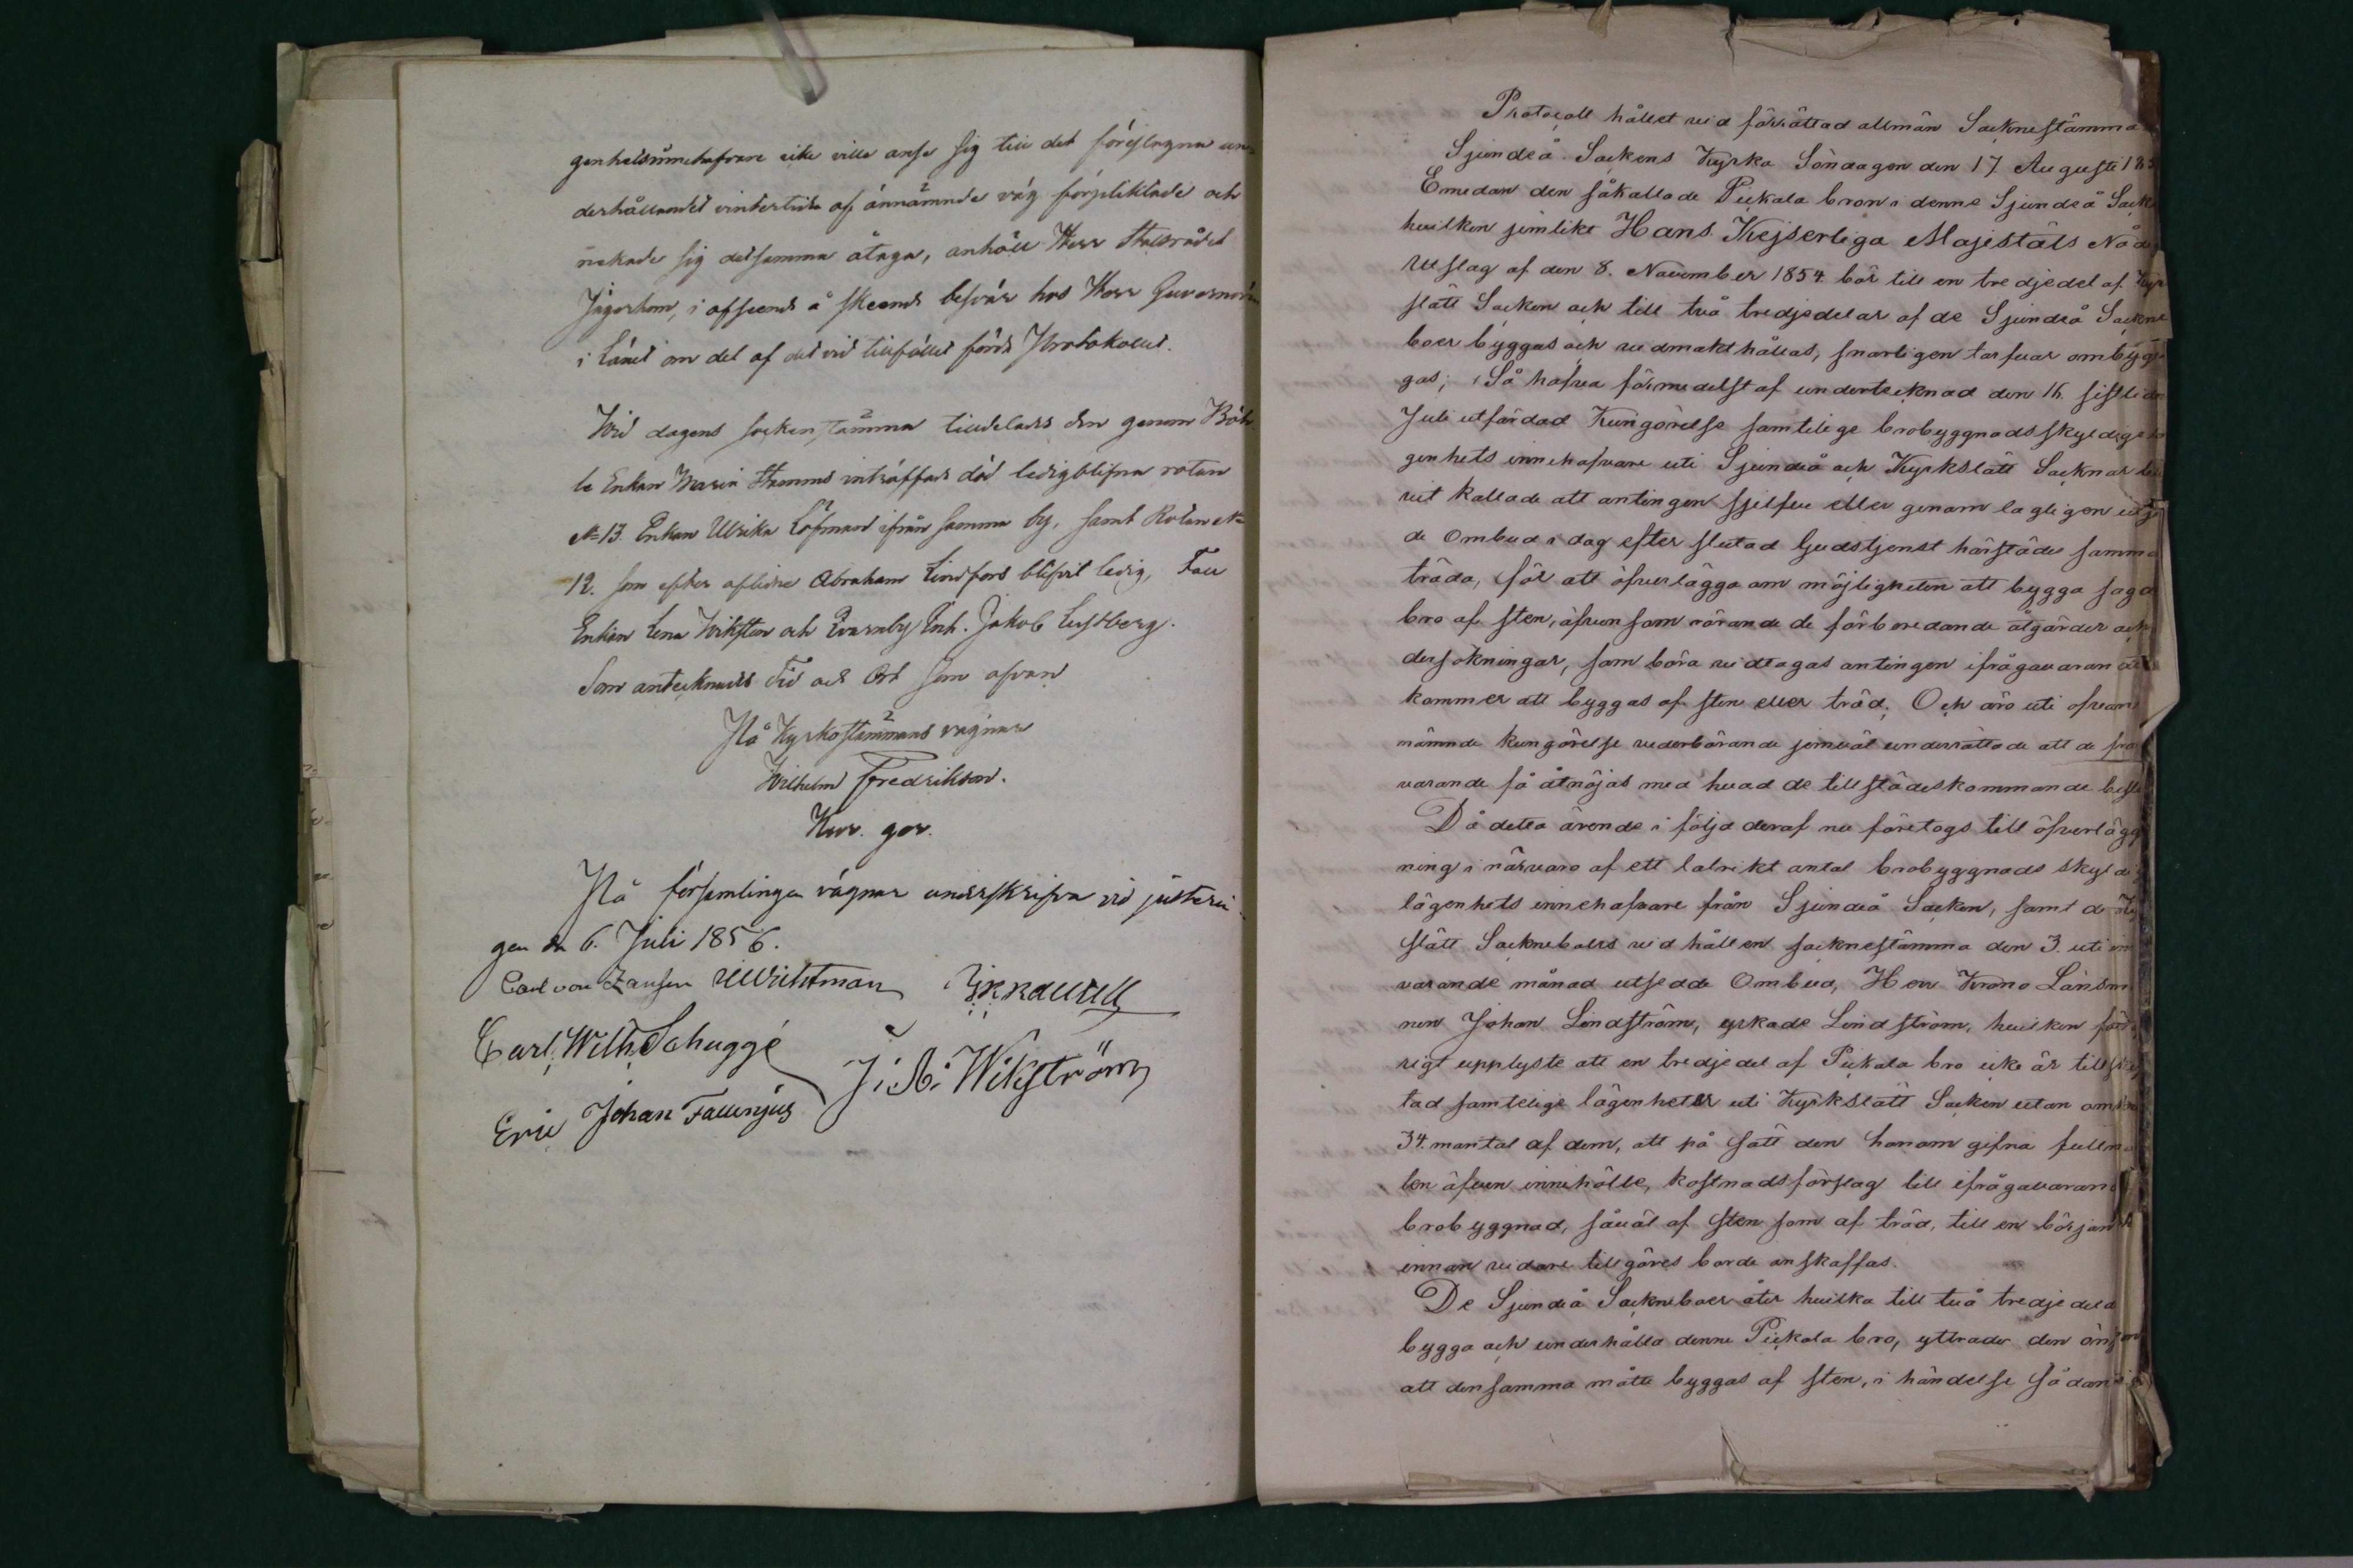 genhetsinnehafvare icke ville anse sig till det föreslagna un-
derhållandet vintertide af ännämnde väg förpliktade och
nekade sig detsamma åtaga, anhöll Herr Statsrådet
Jägerhorn, i afseende å skeende besvär hos Herr Guvernören
i Länet om del af det vid tillfället förda Protokollet.
Wid dagens sockenstämma tilldelades den genom Böh-
le Enkan Maria inträffade död ledigblifna rotan
N 13. Enkan Ulrika Löfman ifrån samma by, samt Rotan N
12. som efter aflidne Abraham Lindfors blifvit ledig,
Enkan Lena Wiksten och Inh. Jakob Lustberg.
Som antecknades Tid och Ort som ofvan
På Kyrkostämmans vägnar
Wilhelm Fredrikson.
På församlingens vägnar underskrifva vid justerin-
gen den 6. Juli 1856.
Carl von
Carl Wilh. Schuggé
J. A. Wikström
Eric Johan Fallenjus
Protocoll hållet vid förrättad allmän Socknestämma
Sjundeå Sockens Kyrka Söndagen den 17 Augusti
Emedan den såkallade Pickala bron i denne Sjundeå
hvilken jemlikt Hans Kejserliga Majestäts
utslag af den 8. November 1854. bör till en tredjedel af
slätt Socken och till två tredjedelar af de Sjundeå
boer byggas och vidmakt hållas, snarligen tarfvar ombyg-
gas; Så hafva förmedelst af undertecknad den 16. sistlidne
Juli utfärdad Kungörelse samtelige brobyggnadsskyldige
genhets innehafvare uti Sjundeå och Kyrkslätt Socknar
vit kallade att antingen sjelfve eller genom lagligen
de Ombud i dag efter slutad Gudstjenst härstädes samman-
träda, för att öfverlägga om möjligheten att bygga
bro af sten, äfven som rörande de förberedande åtgärder och
dersökningar, som böra vidtagas antingen ifrågavarande
kommer att byggas af sten eller träd; Och äro uti ofvan-
nämnde kungörelse vederbörande jemväl underrättade att de frå-
varande få åtnöjas med hvad de tillstädeskommande
Då detta ärende i följd deraf nu företogs till öfverlägg-
ning i närvaro af ett talrikt antal brobyggnads
lägenhets innehafvare från Sjundeå Socken, samt de
slätt Socknеboers vid hållen socknestämma den 3. uti
varande månad utsedde Ombud, Herr Krono Länsman-
nen Johan Lindström, yrkade Lindström, hvilken
rigt upplyste att en tredjedel af Pickala bro icke är
tad samtelige lägenheter uti Kyrkslätt Socken utan
34. mantal af dem, att på sätt den honom gifna
ten äfven innehölle, kostnadsförslag till ifrågavarande
brobyggnad, såväl af sten som af träd, till en början
innan vidare tillgöres borde anskaffas.
De Sjundeå Socknеboer åter hvilka till två
bygga och underhålla denne Pickala bro, yttrade den önskan
att densamma måtte byggas af sten, i händelse sådant